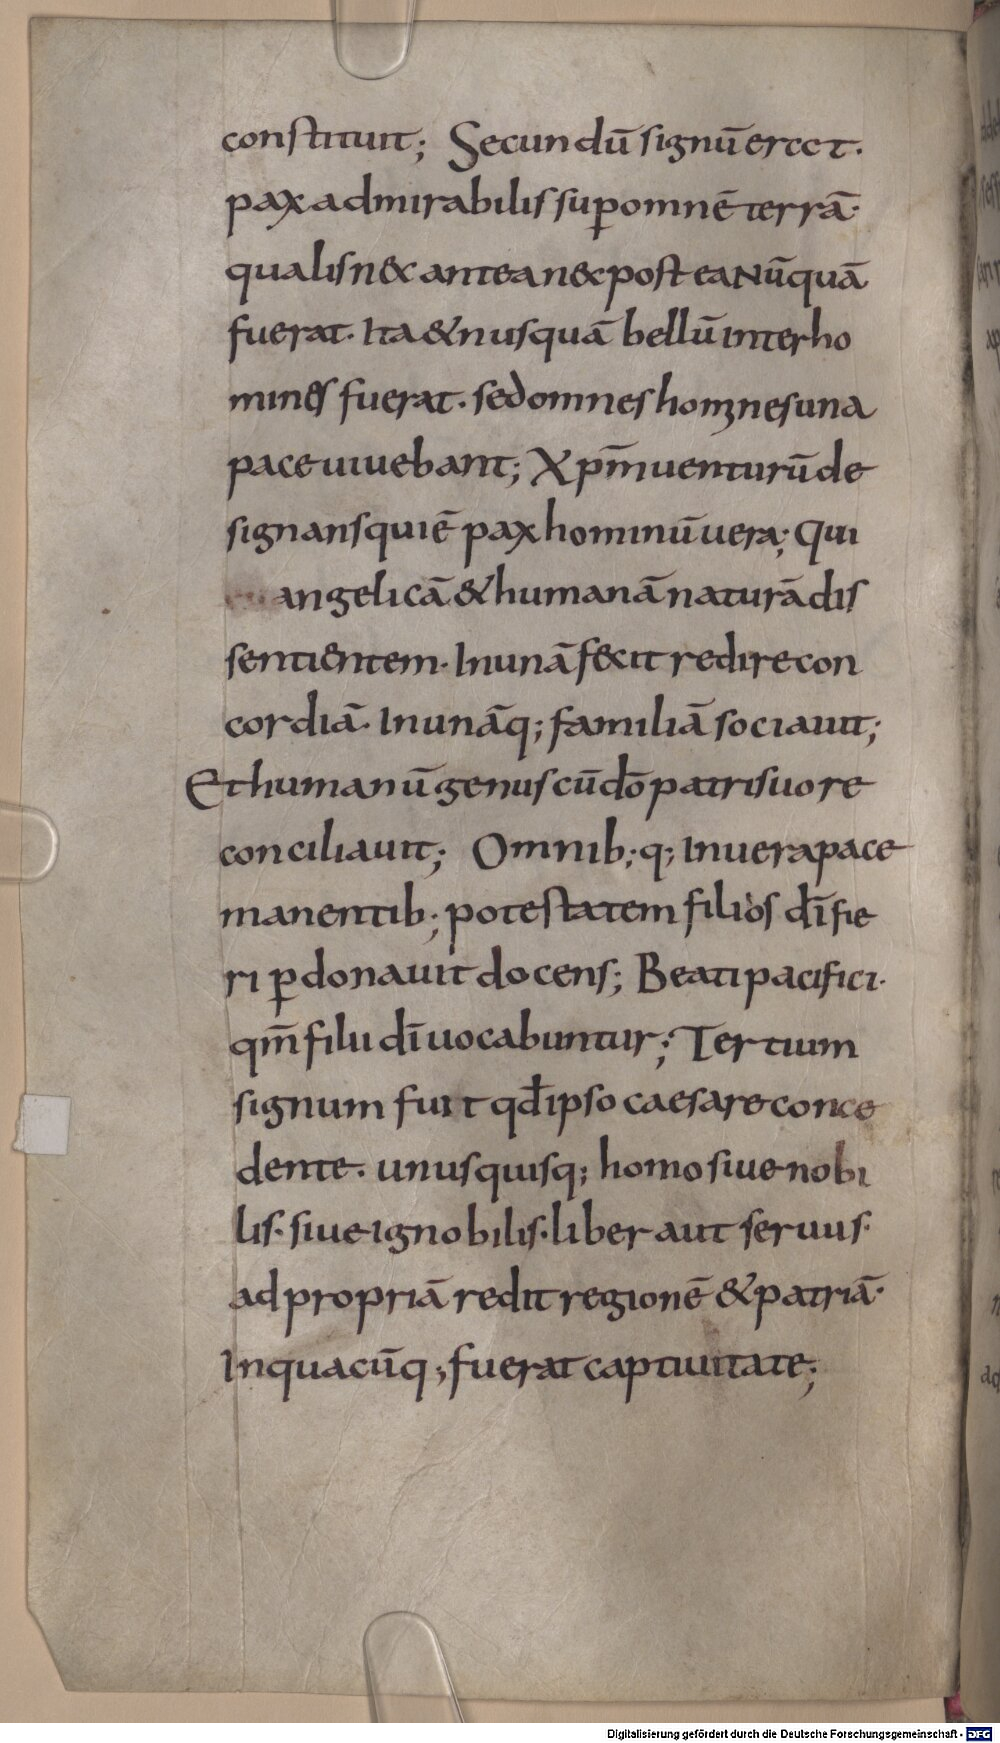 constituit; Secundū signū eracT.
pax admirabilis sup omnē terrā·
qualis nec antea nec post ea Nūquā
fuerat· Ita & nusquā bellū inter ho
mines fuerat· sed omnes homines una
pace uiuebant; Xp̄m uenturū de
signans qui ē pax hominū uera; Qui
angelicā & humanā naturā dis
sentientem· In unā fecit redire con
cordiā· In unāq; familiā sociauit;
Et humanū genus cū dō patri suo re
conciliauit; Omnib;q; In uera pace
manentib; potestatem filios dī fie
ri pdonauit docens; Beati pacifici·
qm̄ filii dī uocabuntur; Tertium
signum fuit qđ ipso caesare conce
dente· unusquisq; homo siue nobi
lis· siue ignobilis· liber aut seruus·
ad propriā redit regionē & patriā·
In quacūq; fuerat captiuitate;
Digitalisierung gefördert durch die Deutsche Forschungsgemeinschaft - DFG